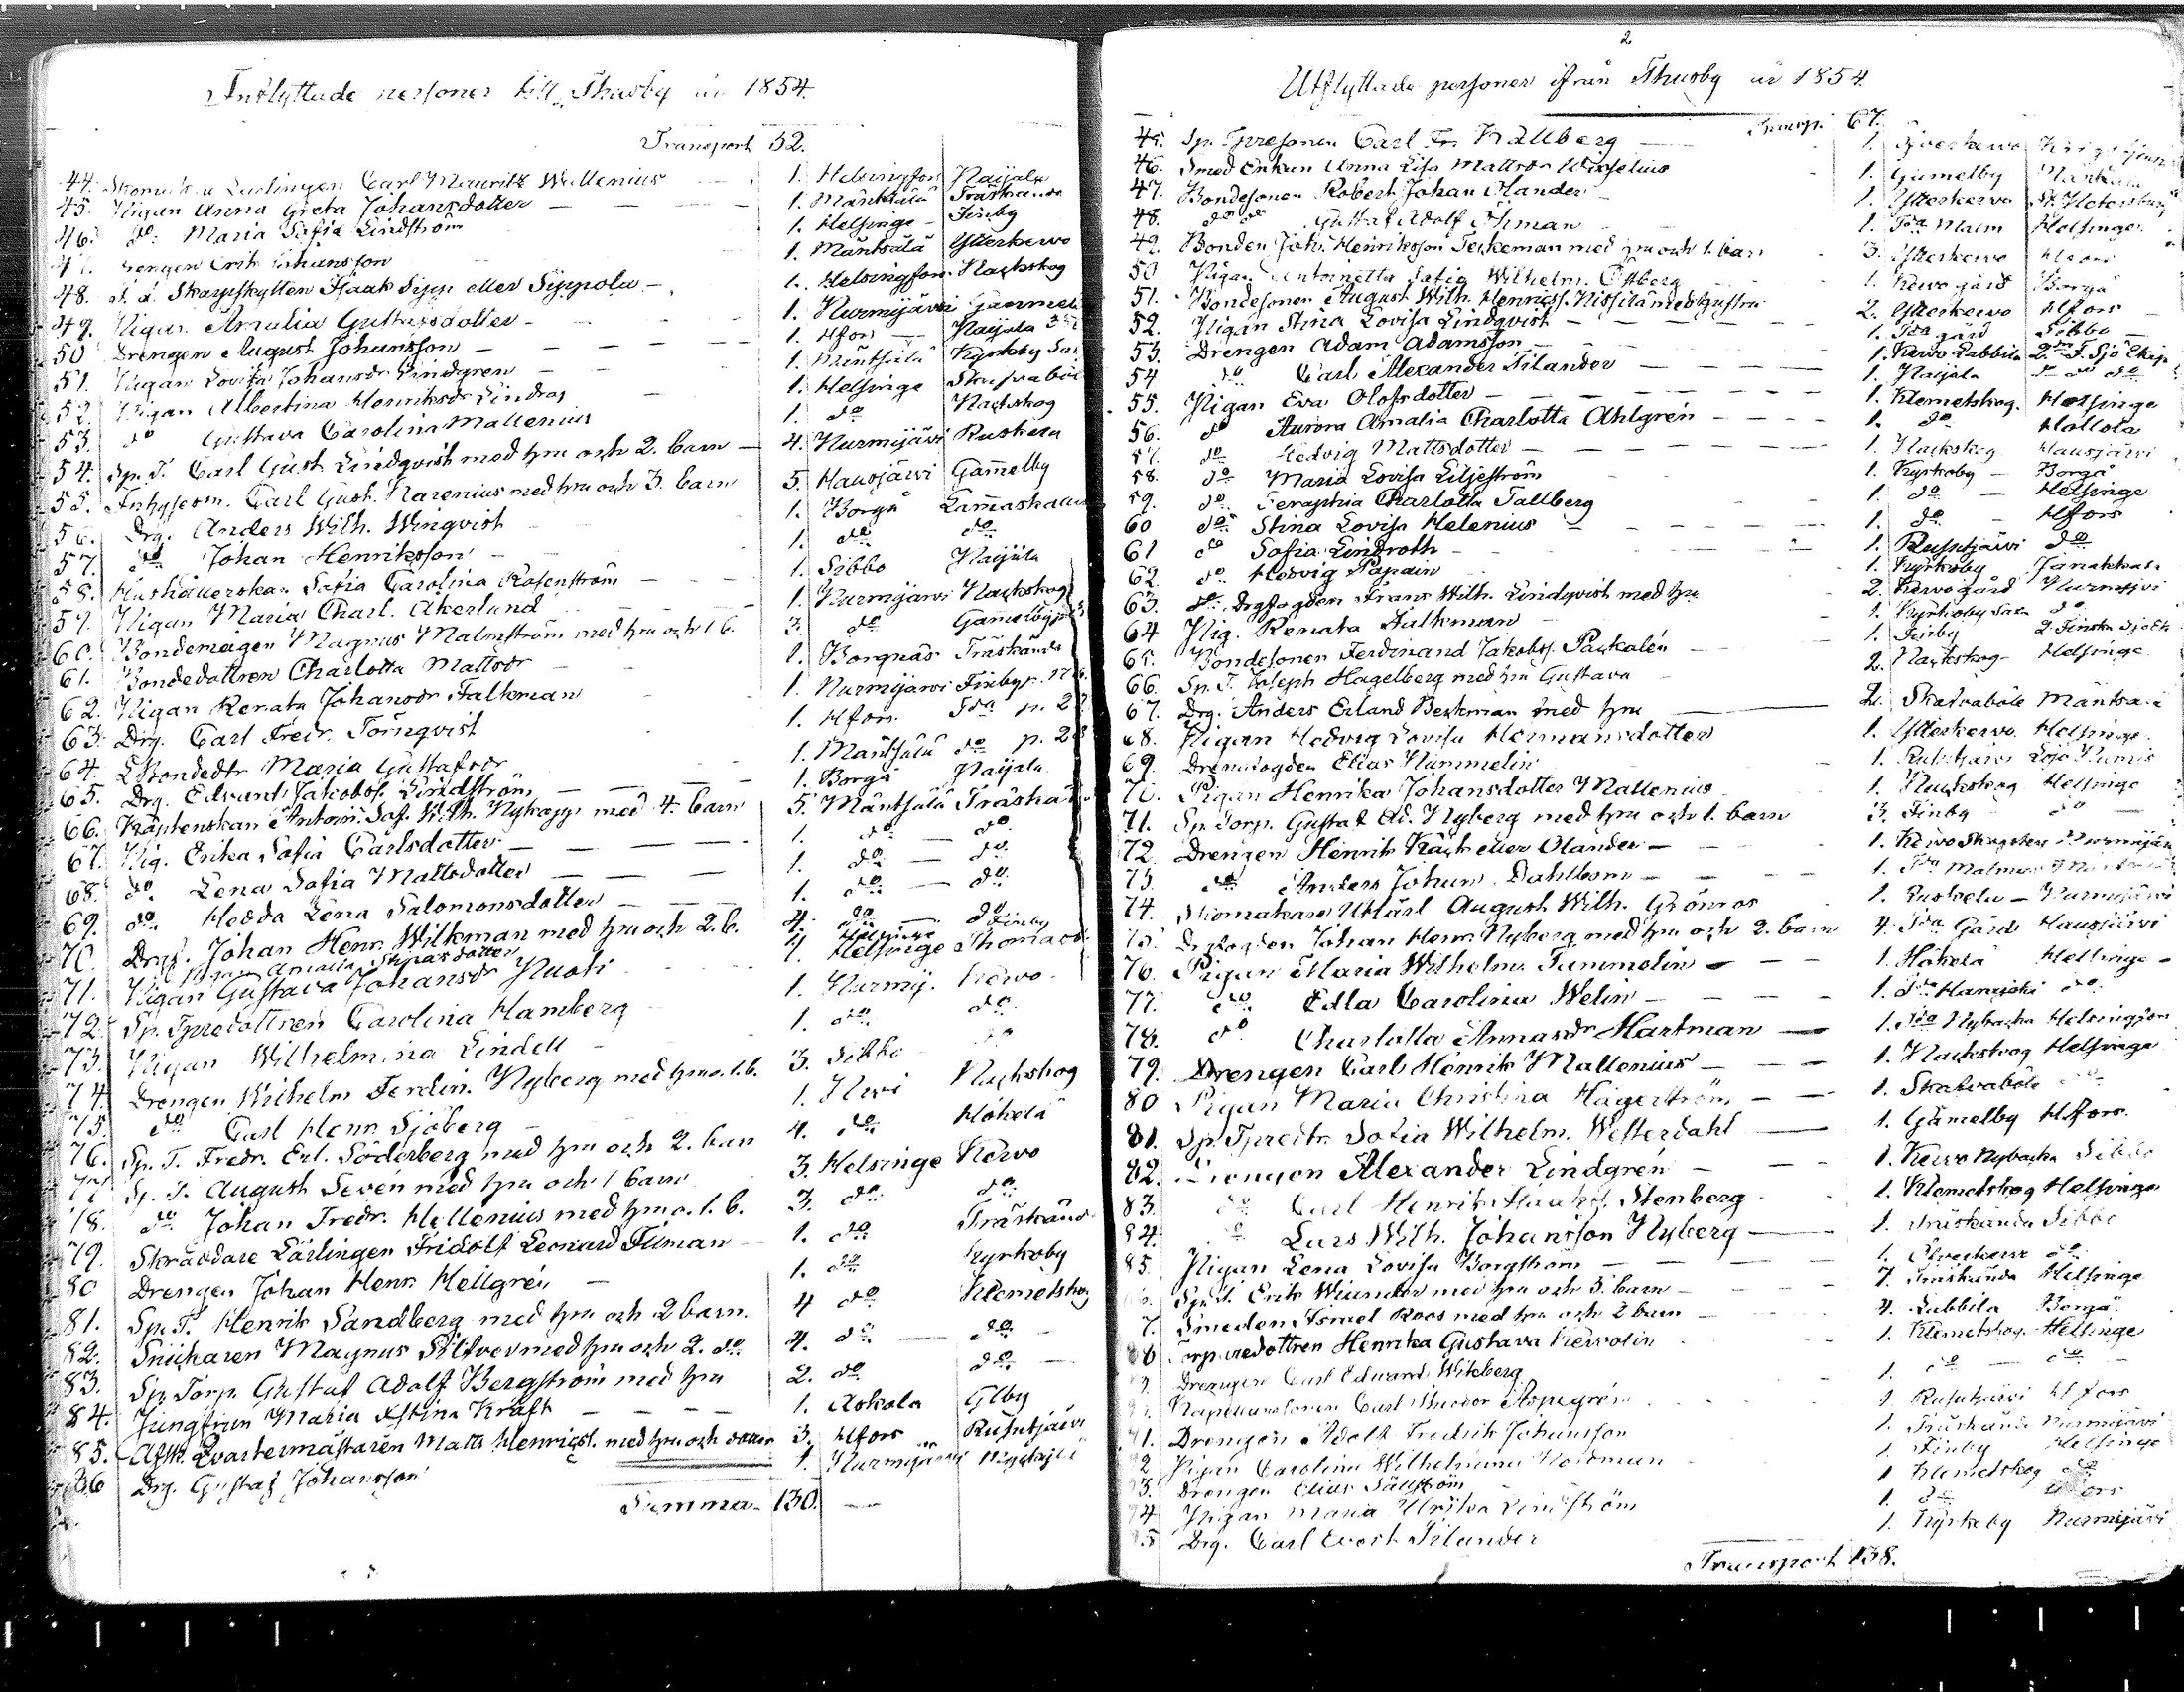 Inflyttade personer till Thusby år 1854.
Transport 52.
44. Skomak. Lärlingen Carl Mauritz Wallenius 1. Helsingfors Paijala
45. Pigan Anna Greta Johansdotter 1. Mäntsälä Träskända
46. do Maria Sofia Lindström 1. Helsinge Finby
47. Drengen Erik Johansson 1. Mäntsälä Ytterkervo
48. Skarpskytten Isaak Sipp eller Sippola 1. Helsingfors Nackskog
49. Pigan Amalia Gustafsdotter 1. Nurmijärvi Gammelby
50 Drengen August Johansson 1. Hfors Paijala
51. Pigan Lovisa Johansdr Lindgren 1. Mäntsälä Kyrkoby
52. Pigan Albertina Henriksdr Lindros 1. Helsinge Skafvaböle
53. do Gustava Carolina Mallenius 1. do Nackskog
54. Sp. T. Carl Gust. Lindqvist med hu och 2. barn 4. Nurmijärvi Ruskela
55. Inhyses m. Carl Gust. Narenius med hu och 3. barn 5. Hausjärvi Gammelby
56. Drg. Anders Wilh. Winqvist 1. Borgå
57. do Johan Henriksson 1. do do
58. Hushållerskan Sofia Carolina Rosenström 1. Sibbo Paijala
59. Pigan Maria Charl. Åkerlund 1. Nurmijärvi Nackskog
60. Bondemågen Magnus Malmström med hu och 1 b. 3. do Gammelby
61. Bondedottren Charlotta Mattsdr 1. Borgnäs Träskända
62. Pigan Renata Johansdr Falkman 1. Nurmijärvi Finby
63. Drg. Carl Fredr. Törnqvist 1. Hfors
64. Bondedtr Maria Gustafsdr 1. Mäntsälä do
65. Drg. Edvard Jakobss. Lindström 1. Borgå Paijala
66. Kaptenskan Antoin. Sof. Wilh. Nykopp med 4. barn 5. Mäntsälä Träskända
67. Pig. Erika Sofia Carlsdotter 1. do do
68. do Lena Sofia Mattsdotter 1. do do
69. do Hedda Lena Salomonsdotter 1. do do
70. Drg. Johan Henr. Wilkman med hu och 2. b. 4. do Finby
71. Pigan Gustava Johansdr Nuoti 1. Helsinge
72. Sp. Tpredottren Carolina Hamberg 1. Nurmij. Kervo
73. Pigan Wilhelmina Lindell 1. do do
74. Drengen Wilhelm Ferdin. Nyberg med hu o. 1. b. 3. Sibbo do
75. do Carl Henr. Sjöberg 1. Nackskog
76. Sp. T. Fredr. Erl. Söderberg med hu och 2. barn 4. do Höhelä
77 Sp. T. August Sevén med hu och 1 barn 3. Helsinge Kervo
78. do Johan Fredr. Hellenius med hu o. 1. b. 3. do do
79. Skräddare Lärlingen Fridolf Leonard Fliman 1. do Träskända
80 Drengen Johan Henr. Hellgrén 1. do Kyrkoby
81. Sp. T. Henrik Sandberg med hu och 2 barn. 4 do Klemetskog
82. Snickaren Magnus Silfver med hu och 2. do 4. do do
83. Sp. Torp. Gustaf Adolf Bergström med hu 2. do do
84. Jungfrun Maria Kraft 1. Askola Glby
85. Afsk. Qvartermästaren Matts Henricss. med hu och dotter 3. Hfors Rusutjärvi
86 Drg. Gustaf Johansson 1. Nurmijärvi
Summa 130.
2
Utflyttade personer ifrån Thusby år 1854
Transp. 67.
45. Sp. Tpresonen Carl Fr. Källberg 1.
46. Smed Enkan Anna Lisa Mattsdr Wixelius 1. Gamelby
47. Bondesonen Robert Johan Olander 1. Ytterkervo St. Petersburg
48. do do Gustaf Adolf Öhman 1. Malm Helsinge
49. Bonden Joh. Henriksson Teckeman med hu och 1. barn 3. Ytterkervo Hfors
50. Pigan Antoinetta Sofia Wilhelm. Östberg 1. Kervo gård Borgå
51. Bondesonen August Wilh. Henricss. Nissilä med hustru 2. Ytterkervo Hfors
52. Pigan Stina Lovisa Lindqvist 1. gård Sibbo
53. Drengen Adam Adamsson 1. Kervo Labbila
54 do Carl Alexander Silander 1. Paijala do do do
55. Pigan Eva Olofsdotter 1. Klemetskog. Helsinge
56. do Aurora Amalia Charlotta Ahlgrén 1. do Hollola
57. do Hedvig Mattsdotter 1. Nackskog Hausjärvi
58. do Maria Lovisa Liljeström 1. Kyrkoby Borgå
59. do Seraphia Charlotta Tallberg 1 do Helsinge
60 do Stina Lovisa Helenius 1. do Hfors
61 do Sofia Lindroth 1. Rusutjärvi do
62. do Hedvig Papain 1. Kyrkoby Janakkala
63. Drgfogden Frans Wilh. Lindqvist med hu 2. Kervo gård Nurmijvi
64 Pig. Renata Falkman 1. Kyrkoby do
65. Bondesonen Ferdinand Jakobss. Paskalén 1. Finby
66. Sp. T. Joseph Hagelberg med hu Gustava 2. Nackskog Helsinge
67. Drg. Anders Erland Beckman med hu 2. Skafvaböle Mäntsälä
68. Pigan Hedvig Lovisa Hermansdotter 1. Ytterkervo Helsinge
69. Drengfogden Elias Nummelin 1.
70. Pigan Henrika Johansdotter Mallenius 1. Nackskog Helsinge
71. Sp. Torp. Gustaf Ad. Nyberg med hu och 1. barn 3. Finby do
72. Drengen Henrik Käck eller Olander 1.
73. do Anders Johan Dahlbom 1.
74. Skomakare Utlärl August Wilh. Grönros 1. Ruskela Nurmijärvi
75. Drgfogden Johan Henr. Nyberg med hu och 2. barn 4. Gård Hausjärvi
76. Pigan Maria Wilhelm. Tammelin 1. Höhelä Helsinge
77. do Edla Carolina Welin 1. do
78. do Charlotta Annasdr Hartman 1. Nybacka Helsingfors
79. Drengen Carl Henrik Mallenius 1. Nackskog Helsinge
80 Pigan Maria Christina Hägerström 1. Skafvaböle do
81. Sp. Tpredtr. Sofia Wilhelm. Westerdahl 1. Gamelby Hfors.
82. Drengen Alexander Lindgrén 1. Kervo Nybacka Sibbo
83. do Carl Henrik Isaakss. Stenberg 1. Klemetskog Helsinge
84. do Lars Wilh. Johansson Nyberg 1. Träskända Sibbo
85. Pigan Lena Lovisa Borgström 1. do
Sp. T. Erik med hu och 5. barn 7. Träskända Helsinge
7. Smeden Ismel Roos med hu och 2 barn 4. Labbila Borgå
Torparedottren Henrika Gustava Kervolin 1. Klemetskog. Helsinge
Drengen Carl Edward Wikberg 1. do do
Kapellansonen Carl Theodor Aspegrén 1. Rusutjärvi Hfors
91. Drengen Adolf Fredrik Johansson 1. Träskända Nurmijärvi
92 Pigan Carolina Wilhelmina Nordman 1. Finby Helsinge
93. Drengen Elias Sällström 1 Klemetskog do
94 Pigan Maria Ulrika Lindström 1. do
95 Drg. Carl Evert Silander 1. Kyrkoby Nurmijärvi
Transport 138.